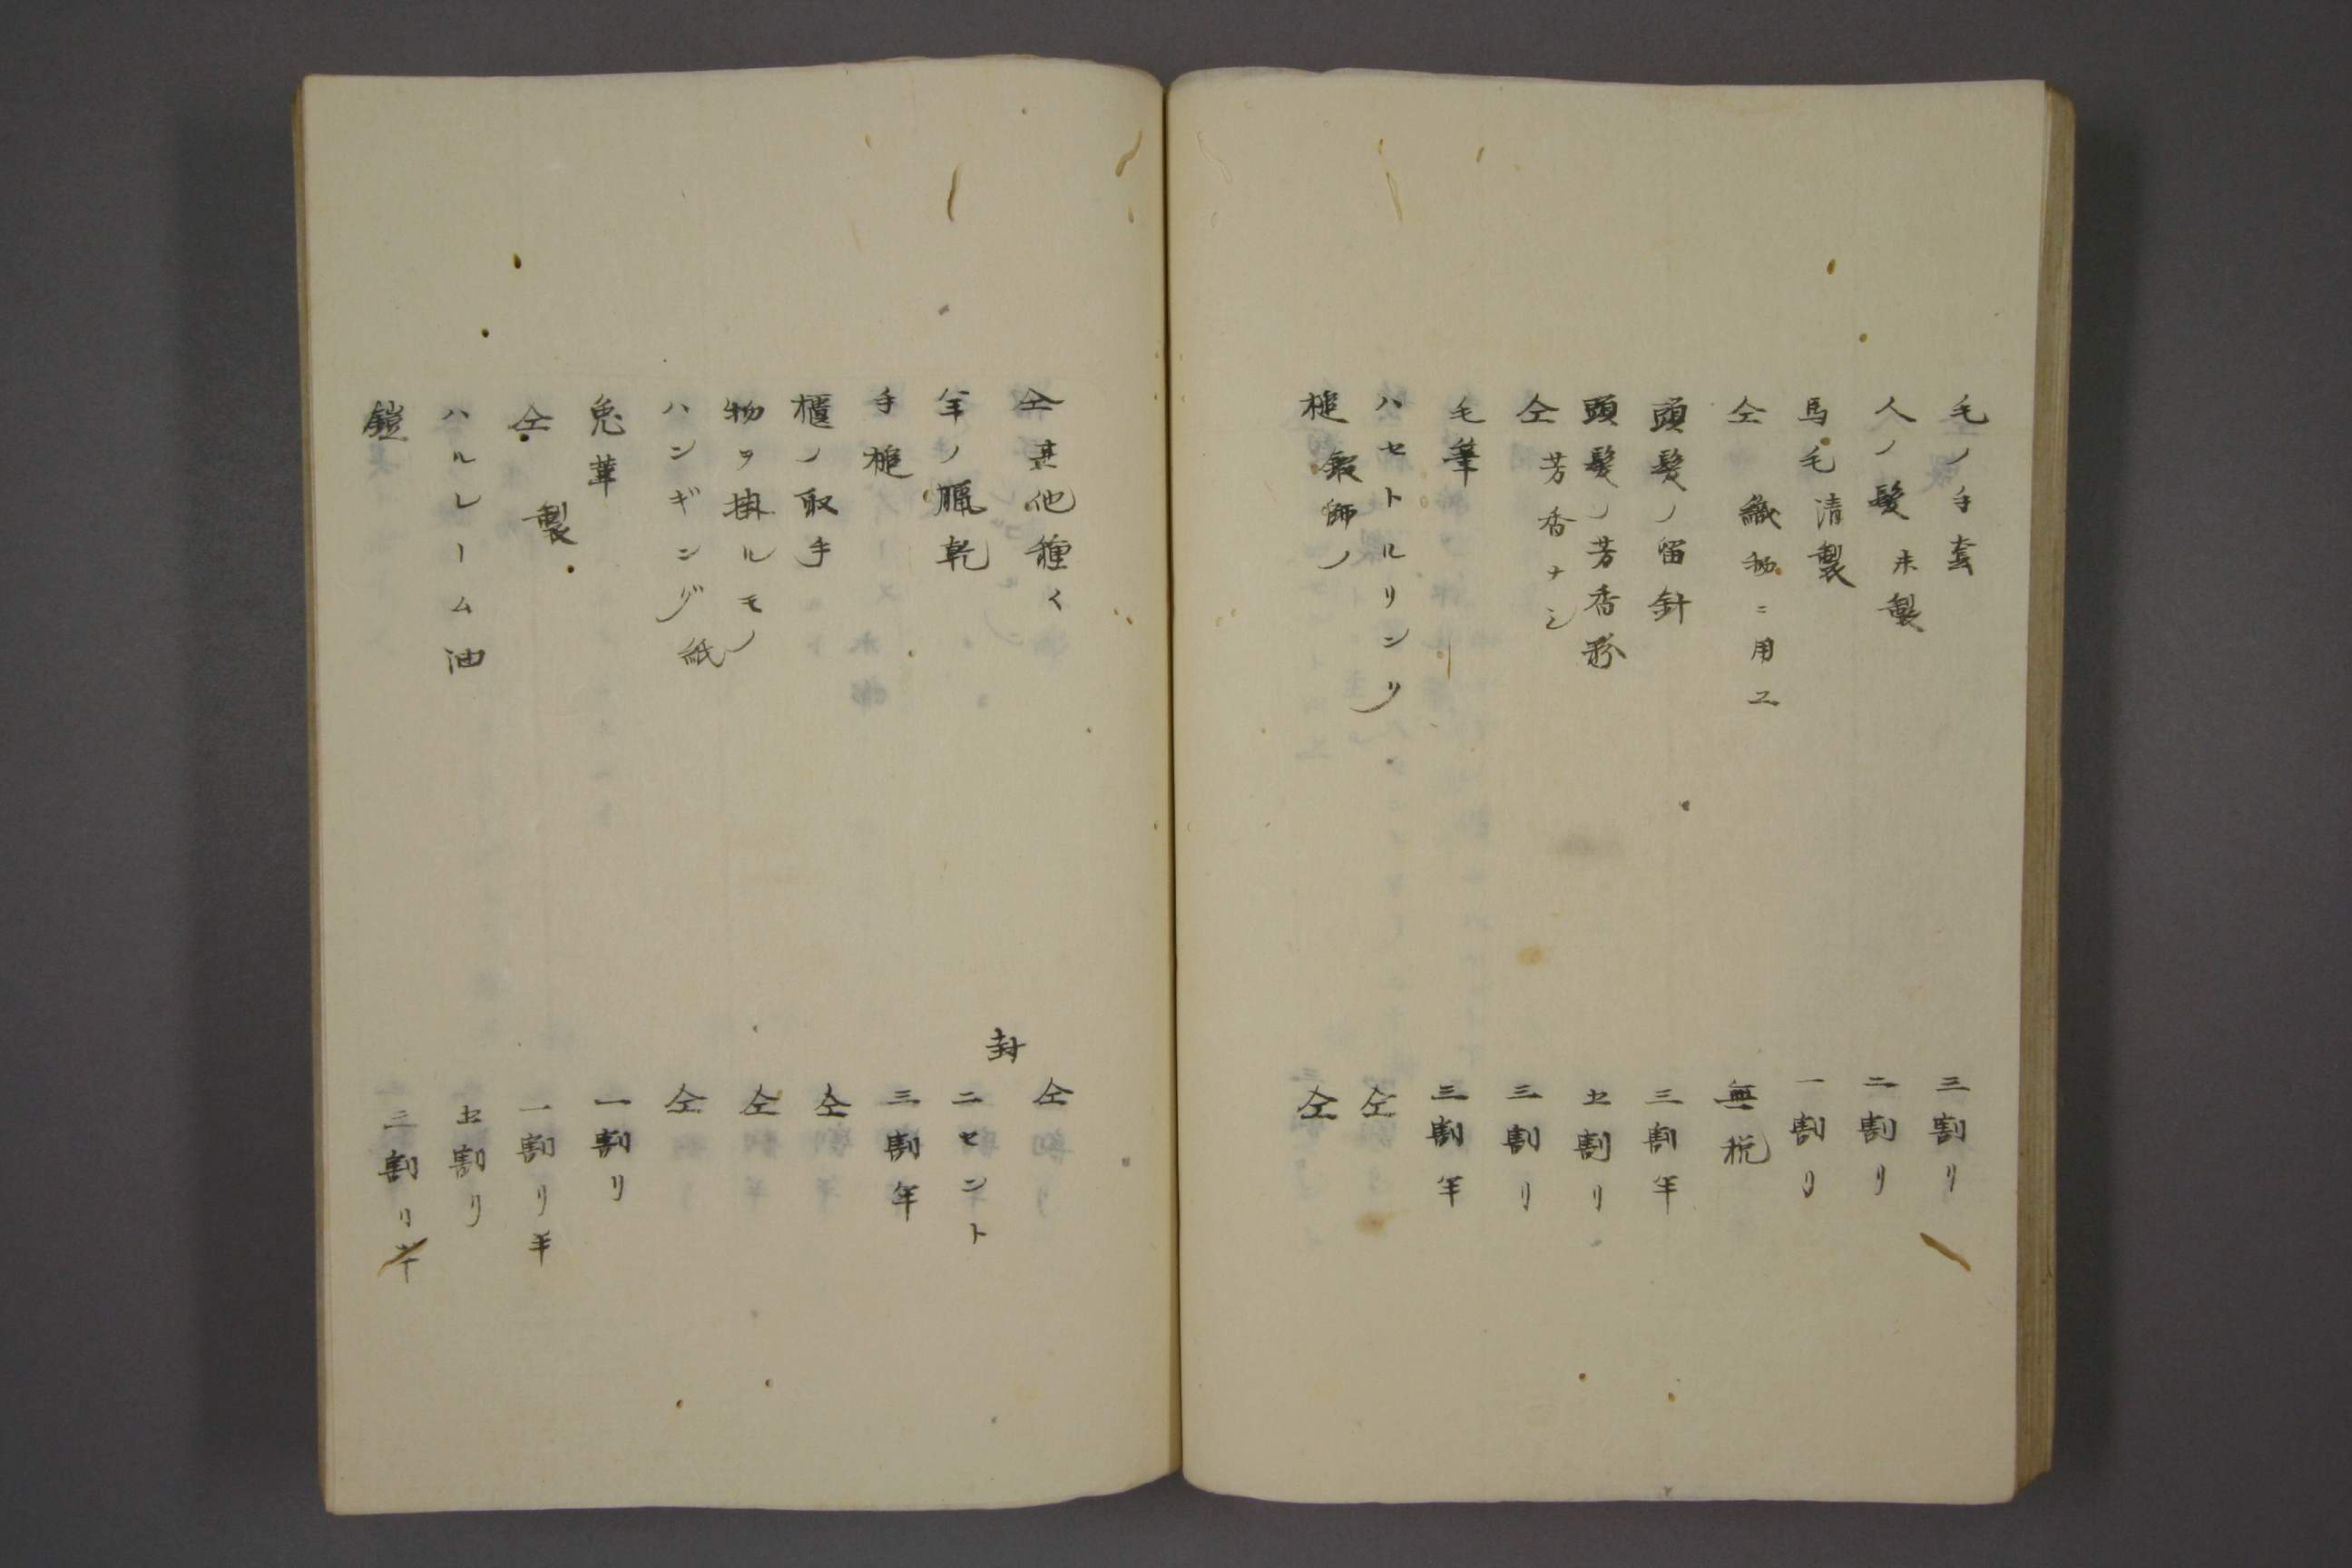 毛ノ手套 三割リ
人ノ髪 未製 二割リ
馬毛清製 一割リ
仝 織物ニ用ユ 無税
頭髪ノ留針 三割半
頭髪ノ芳香 五割リ
仝 芳香ナシ 三割リ
毛筆 三割半
ハセトルリンリ 仝
槌 鍛師ノ 仝
仝 其他種々 仝
羊ノ臘乾 封 二セント
手槌 三割半
櫃ノ取手 仝
物ヲ掛ルモノ 仝
ハンギング紙 仝
兎革 一割リ
仝 製 一割リ半
ハルレーム油 五割リ
鎧 三割リ半